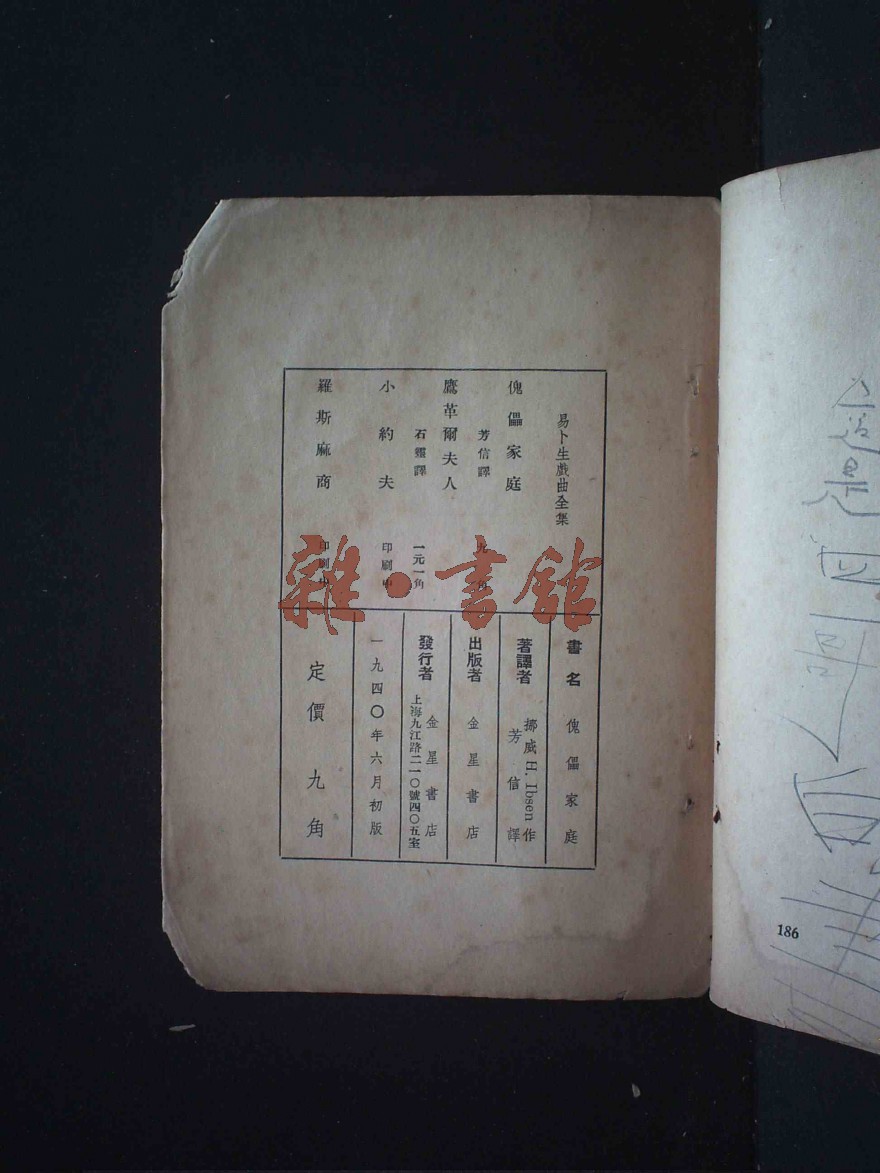 易卜生戲曲全集
傀儡家庭
芳信譯
九角
鷹革爾夫人
石靈譯
一元一角
小約夫
印刷中
羅斯麻商
印刷中
書名 傀儡家庭
著譯者 挪威 H. Ibsen 作
芳信譯
出版者 金星書店
發行者 金星書店
上海九江路二一〇號四〇五室
一九四〇年六月初版
定價 九角
雜·書館
186